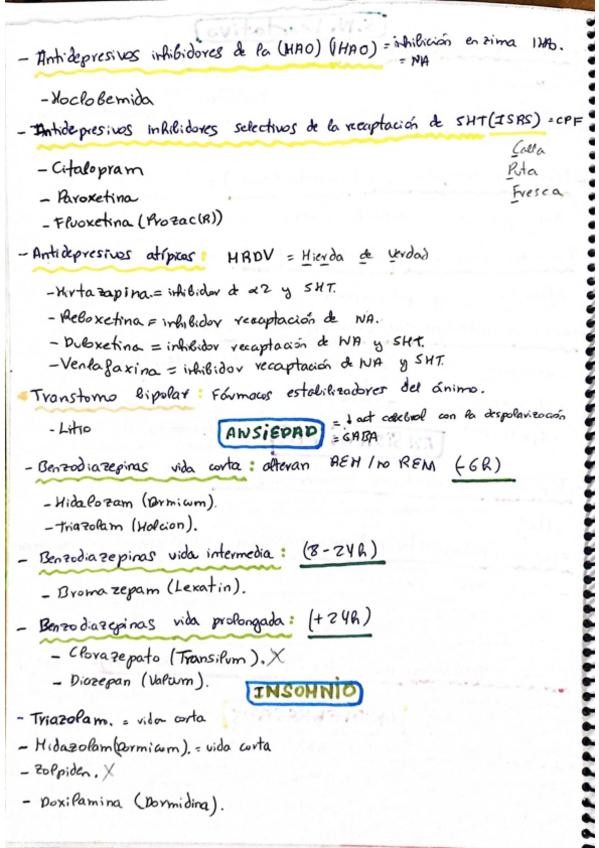 - Antidepresivos inhibidores de la (MAO) (IMAO) = inhibición enzima IMAO.
= NA
- Moclobemida
- Antidepresivos inhibidores selectivos de la recaptación de 5HT (ISRS) = CPF
Calla
- Citalopram
Puta
- Paroxetina
Fresca
- Fluoxetina (Prozac(R))
- Antidepresivos atípicos: MRDV = Mierda de verdad
- Mirtazapina = inhibidor d α2 y 5HT.
- Reboxetina = inhibidor recaptación de NA.
- Duloxetina = inhibidor recaptación de NA y 5HT.
- Venlafaxina = inhibidor recaptación de NA y 5HT.
Transtorno bipolar: Fármacos estabilizadores del ánimo.
- Litio
ANSIEDAD
= ↓ act cerebral con la despolarización
= GABA
- Benzodiazepinas vida corta: alteran REM / no REM (-6h)
- Midalozam (Dormicum).
- Triazolam (Halcion).
- Benzodiazepinas vida intermedia: (8-24h)
- Bromazepam (Lexatin).
- Benzodiazepinas vida prolongada: (+24h)
- Clorazepato (Transilium). X
- Diazepan (Valium).
INSOMNIO
- Triazolam. = vida corta
- Midazolam (Dormicum). = vida corta
- Zolpiden. X
- Doxilamina (Dormidina).